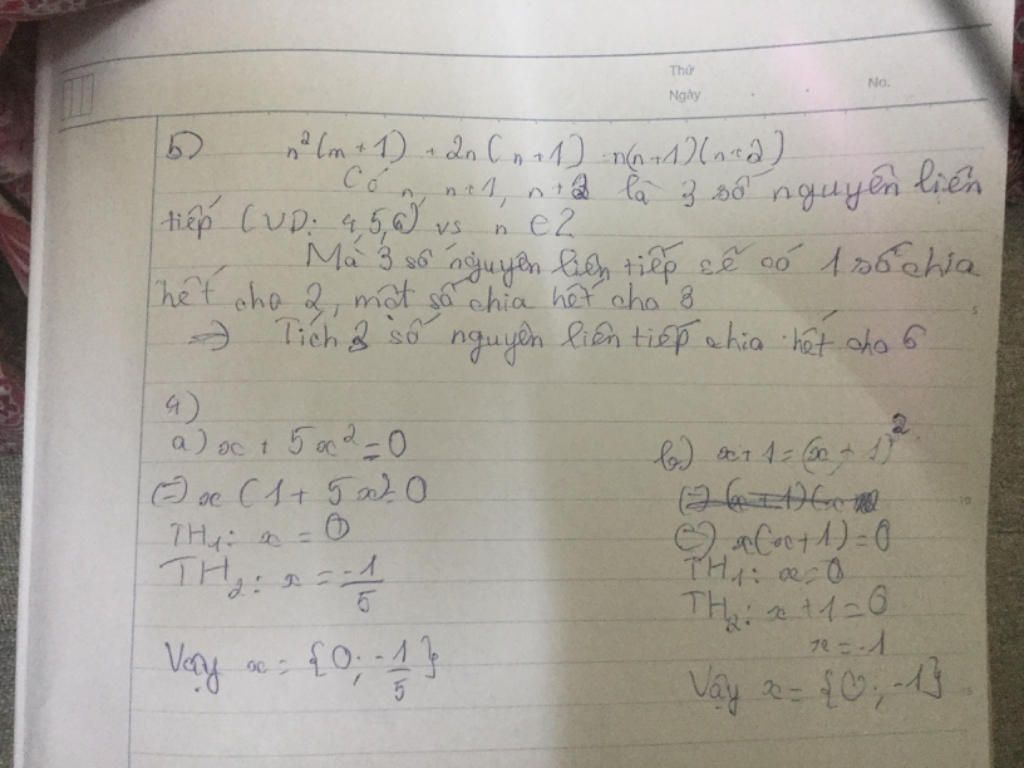 Thứ
Ngày
No.
5) n²(n+1) + 2n(n+1) = n(n+1)(n+2)
Có n, n+1, n+2 là 3 số nguyên liên
tiếp (VD: 4,5,6) vs n e Z
Mà 3 số nguyên liên tiếp sẽ có 1 số chia
hết cho 2, một số chia hết cho 3
=> Tích 3 số nguyên liên tiếp chia hết cho 6
4)
a) x + 5x² = 0
(=) x(1 + 5x) = 0
TH₁: x = 0
TH₂: x = -1/5
Vậy x = {0; -1/5}
b) x+1 = (x+1)²
(=) x(x+1) = 0
TH₁: x=0
TH₂: x+1=0
x=-1
Vậy x = {0; -1}